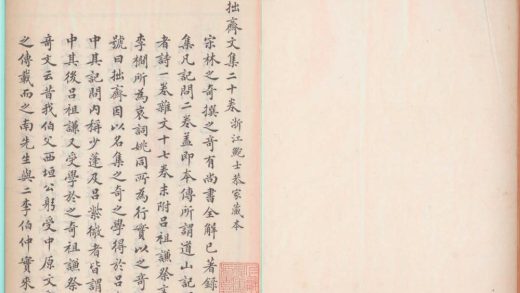 拙齋文集二十卷浙江鮑士恭家藏本
宋林之奇撰之奇有尚書全解已著錄
集凡記問二卷蓋即本傳所謂道山記
者詩一卷雜文十七卷末附呂祖謙祭
李楠所為哀詞姚同所為行實以之奇
號曰拙齋因以名集之奇之學得於呂
中其記問內稱少蓬及呂紫微者皆謂
中其後呂祖謙又受學於之奇祖謙祭
奇文云昔我伯父西垣公躬受中原文
之傳載而之南先生與二李伯仲實來